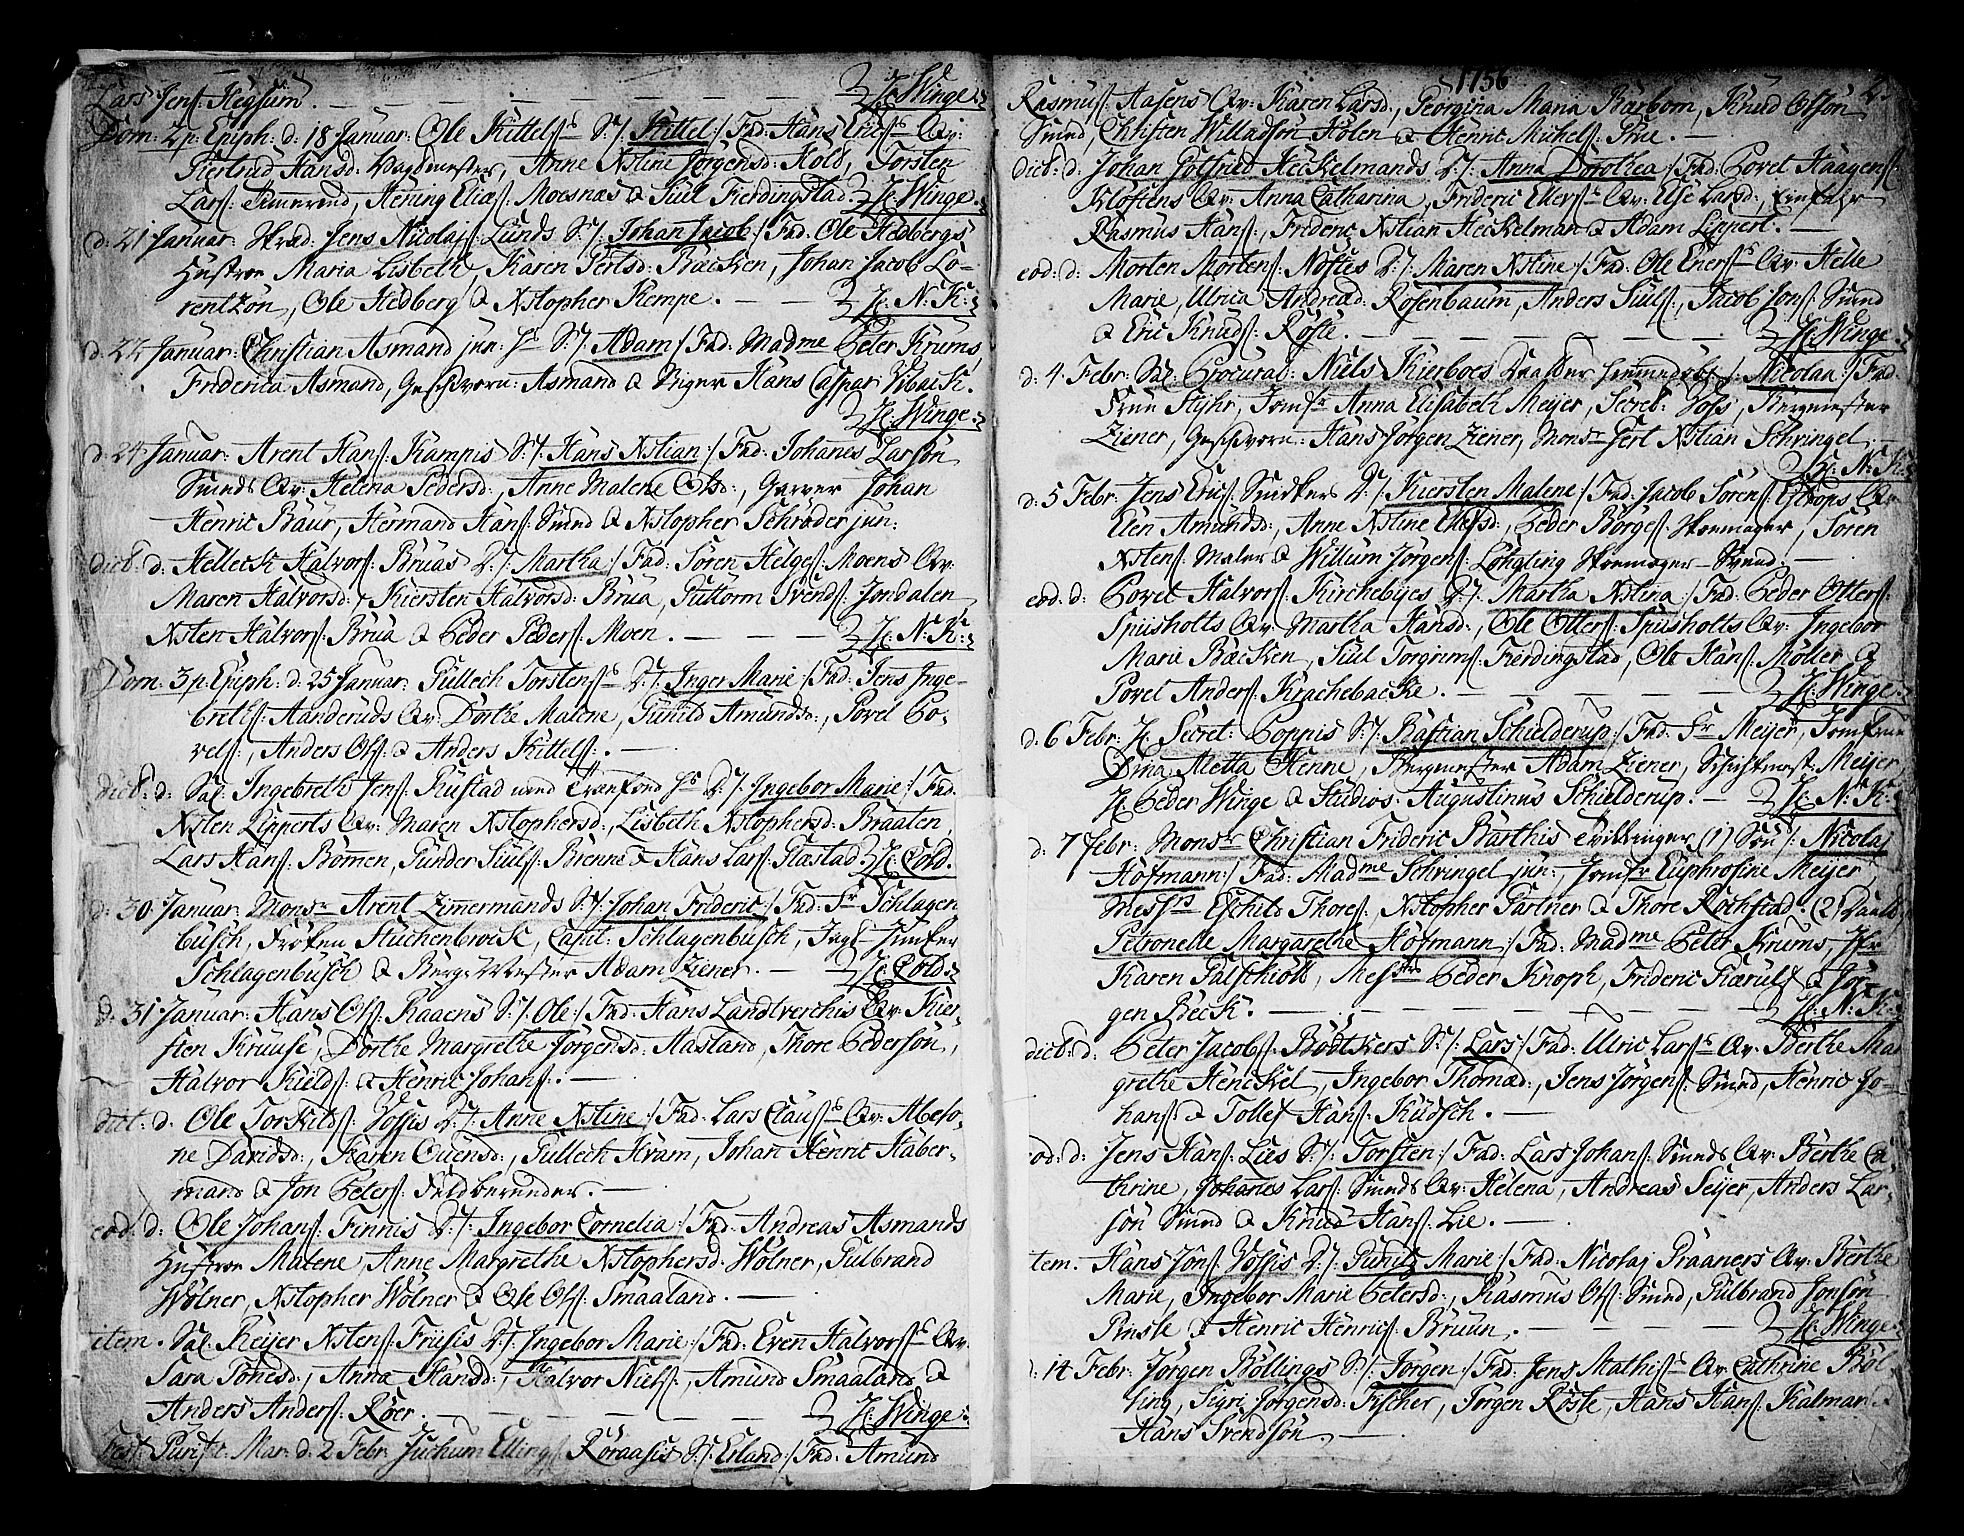 Lars Jens: Hegsum. — — — — H: Winge.
Dom: 2 p: Epiph: d: 18 Januar: Ole Kittels: S:/: Kittel:/ Fad: Hans Erics: Qv:
Giertrud Hansd: Vagtmester, Anne Xstine Jørgensd: Hold, Torsten
Lars: Simerend, Hening Elias: Moesnæs & Siul Fierdingstad. H: Winge.
d: 21 Januar: Skræd: Jens Nicolaj: Lunds S:/: Johan Jacob:/ Fad: Ole Hedbergs
Hustroe Maria Lisbeth, Karen Pertsd: Bæcken, Johan Jacob Lo-
rentzön, Ole Hedberg & Xstopher Kempe. — — H: N: K:
d: 22 Januar: Christian Asmand jun: S:/: Adam:/ Fad: Madme Peter Krums
Friderica Asmand, Geschworn: Asmand & Stiger Hans Casper Ubach.
H: Winge:
d: 24 Januar: Arent Hans: Kampis S:/: Hans Xstian:/ Fad: Johanes Larsön
Smeds Qv: Helena Pedersd:, Anne Malene Olsd:, Garver Johan
Henric Baur, Hermand Hans: Smed & Xstopher Schröder jun:
dict: d: Helleck Halvors: Bruas D:/: Martha:/ Fad: Sören Helges: Moens Qv:
Maren Halvorsd:, Kiersten Halvorsd: Brua, Guttorm Svends: Jondalen
Xsten Halvors: Brua & Peder Peders: Moen. — — — H: N: K:
Dom: 3 p: Epiph: d: 25 Januar: Gullech Torstens: D:/: Inger Marie:/ Fad: Jens Inge-
breths: Aanderuds Qv: Dorthe Malene, Gunild Amundsd:, Povel Po-
vels:, Anders Ols: & Anders Kittels: —
dict: d: Sal: Ingebreth Jens: Rustad D:/: Ingebor Marie:/ Fad:
Xsten Lipperts Qv: Maren Xstophersd:, Lisbeth Xstophersd: Braaten
Lars Hans: Bömen, Gunder Siuls: Brenne & Hans Lars: Flastad. H: Cold.
d: 30 Januar: Monsr Arent Zimermands S:/: Johan Frideric:/ Fad: Fr Schlagen
busch, Fröken Stuckenbrock, Capit: Schlagenbusch, Jagt Junker
Schlagenbusch & BergMester Adam Ziener. — H: Cold:
d: 31 Januar: Hans Ols: Raaens S:/: Ole:/ Fad: Hans Landtverchis Qv: Kier-
sten Kruuse, Dorthe Margrethe Jørgensd: Aasland, Thore Pedersön,
Halvor Kields: & Henric Johans: —
dict: d: Ole Torkilds: Vossis D:/: Anne Xstine:/ Fad: Lars Claus: Qv: Abelo-
ne Davidsd:, Karen Ouensd:, Gullech Hvam, Johan Henric Haber-
mand & Jon Peters: Feldbereuder. —
eod: d: Ole Johans: Finnis D:/: Ingebor Cornelia:/ Fad: Andreas Asmands
Hustroe Malene, Anne Margrethe Xstophersd: Wölner, Gulbrand
Wölner, Xstopher Wölner & Ole Ols: Smaaland. —
item. Sal: Reijer Xstens: Friisis D:/: Ingebor Marie:/ Fad: Even Halvors: Qv:
Sara Tonesd:, Anna Hansd:, Halvor Niels:, Amund Smaaland &
Anders Anders: Röer. — — — — H: Winge:
Fest: Purif: Mar: d: 2 Febr: Juchum Ellings: Roraasis S:/: Erland:/ Fad: Amund
1756
Rasmus: Aasens Qv: Karen Larsd:, Georgina Maria Barbom, Knud Olsön
Smed, Christen Willadsön Holen & Henric Michels: Prue. —
dict: d: Johan Gotfried Heckelmands D:/: Anna Dorothea:/ Fad: Povel Haagens:
Klostens Qv: Anna Catharina, Frideric Ellers: Qv: Else Larsd:, Einfahr
Rasmus Hans:, Frideric Xstian Heckelman & Adam Lippert. —
eod: d: Morten Mortens: Nöstes D:/: Maren Xstine:/ Fad: Ole Eners: Qv: Helle
Marie, Ulrica Andread: Rosenbaum, Anders Siuls:, Jacob Jons: Smed
& Eric Knuds: Röste. — — — — H: Winge:
d: 4 Febr: Sal: Procurat: Niels Kierboes Daatter :/: Nicolaa:/ Fad:
Frue Stÿhr, Jomfr Anna Elisabeth Meijer, Secret: Voss, Bergmester
Ziener, Geschvorn: Hans Jørgen Ziener, Monsr Gert Xstian Schringel. —
H: N: K:
d: 5 Febr: Jens Erics: Snedkers D:/: Kiersten Malene:/ Fad: Jacob Sörens: Estrops Qv:
Elen Amundsd:, Anne Xstine Elefsd:, Peder Börges: Skoemager, Sören
Xstens: Maler & Willum Jørgens: Löhgling Skoemager-Svend. —
eod: d: Povel Halvors: Kirchebijes D:/: Martha Xstina:/ Fad: Peder Otters:
Spusholts Qv: Martha Hansd:, Ole Otters: Spusholts Qv: Ingebor
Marie Bæcken, Siul Torgrims: Fierdingstad, Ole Hans: Möller &
Povel Anders: Krachebacke. — — — — H: Winge.
d: 6 Febr: H: Secret: Poppis S:/: Bastian Schielderup:/ Fad: Fr Meijer, Jomfrue
Dina Metta Henne, Bergmester Adam Ziener, Schichtmst: Meijer
H: Peder Winge & Studios: Augustinus Schielderup. — H: N: K:
d: 7 Febr: Monsr Christian Frideric Barthis Tvillinger (1) Sön:/: Nicolaj
Hofmann:/ Fad: Madme Schvingel jun:, Jomfr Euphrosine Meijer,
Messrs Eschild Thores:, Xstopher Gartner & Thore Rochstad. (2) Daatt:
Petronelle Margarethe Hofmann:/ Fad: Madme Peter Krums, Jfr
Karen Galschiött, Messrs Peder Knoph, Frideric Kærulf & Jör-
gen Beck. — — — — — H: N: K:
dict: d: Peter Jacobs: Bödtkers S:/: Lars:/ Fad: Ulric Lars: Qv: Berthe Mar
grethe Henckel, Ingebor Thomæd:, Jens Jørgens: Smed, Henric Jo-
hans: & Tollef Hans: Kudsch. —
eod: d: Jens Hans: Lies S:/: Torsten:/ Fad: Lars Johans: Smeds Qv: Berthe Ca
thrine, Johanes Lars: Smeds Qv: Helena, Andreas Seijer, Anders Lar-
sön Smed & Knud Hans: Lie. —
item. Hans Jons: Vossis D:/: Gunild Marie:/ Fad: Nicolaj Praaners Qv: Berthe
Marie, Ingebor Marie Petersd:, Rasmus Ols: Smed, Gulbrand Jonsön
Prusle & Henric Henrics: Bruun. — — — H: Winge:
d: 14 Febr: Jørgen Böllings S:/: Jörgen:/ Fad: Jens Mathis: Qv: Cathrine Böl
ling, Sigri Jørgensd: Fischer, Jørgen Röste, Hans Hans: Kalmar &
Hans Svendsön. —